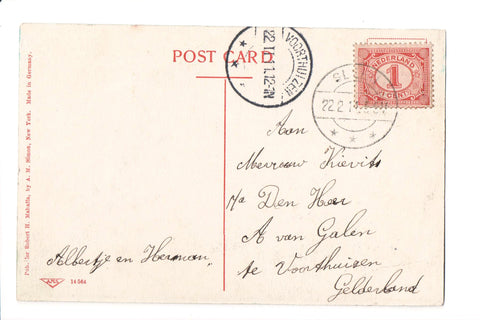 POST CARD
VOORTHUIZEN
NEDERLAND
1
1 CENT
22.2.1
Aan
Mevrouw Kievits
p/a Den Heer
A van Galen
te Voorthuizen
Gelderland
Albertje en Herman
Pub. for Robert H. McCalla, by A. M. Simon, New York. Made in Germany.
AMS
14564